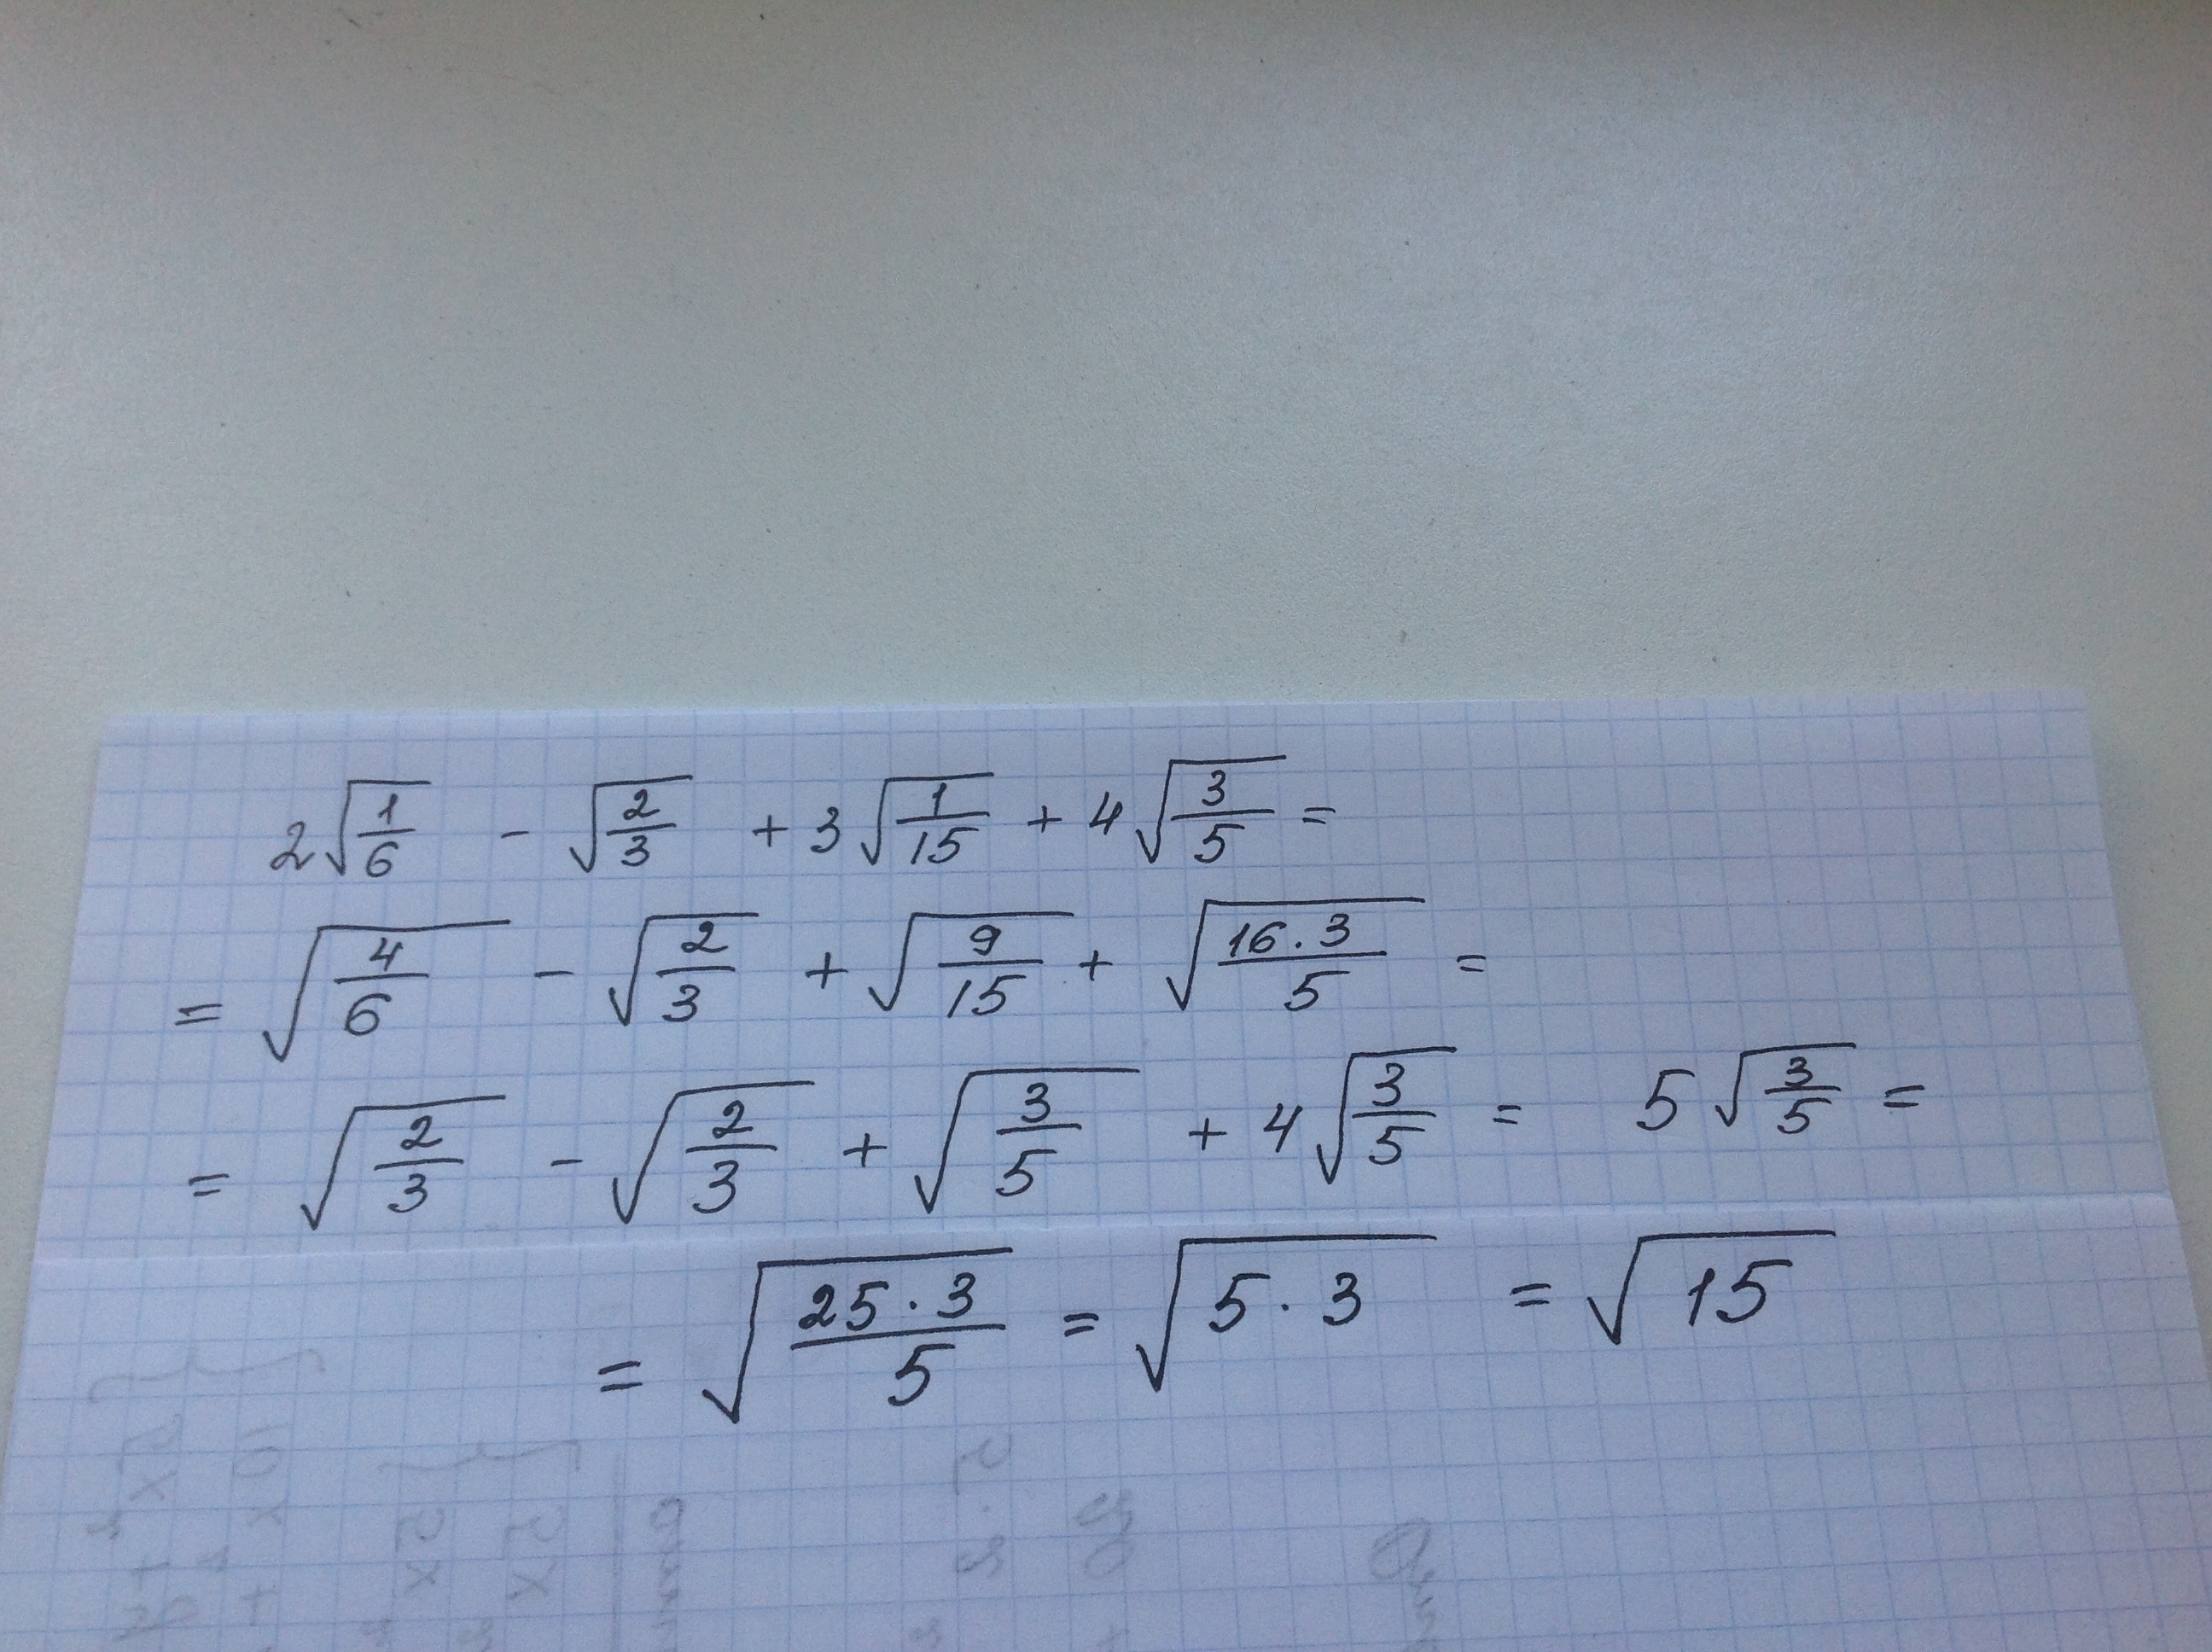 2√(1/6) - √(2/3) + 3√(1/15) + 4√(3/5) =
= √(4/6) - √(2/3) + √(9/15) + √(16·3/5) =
= √(2/3) - √(2/3) + √(3/5) + 4√(3/5) = 5√(3/5) =
= √(25·3/5) = √(5·3) = √15